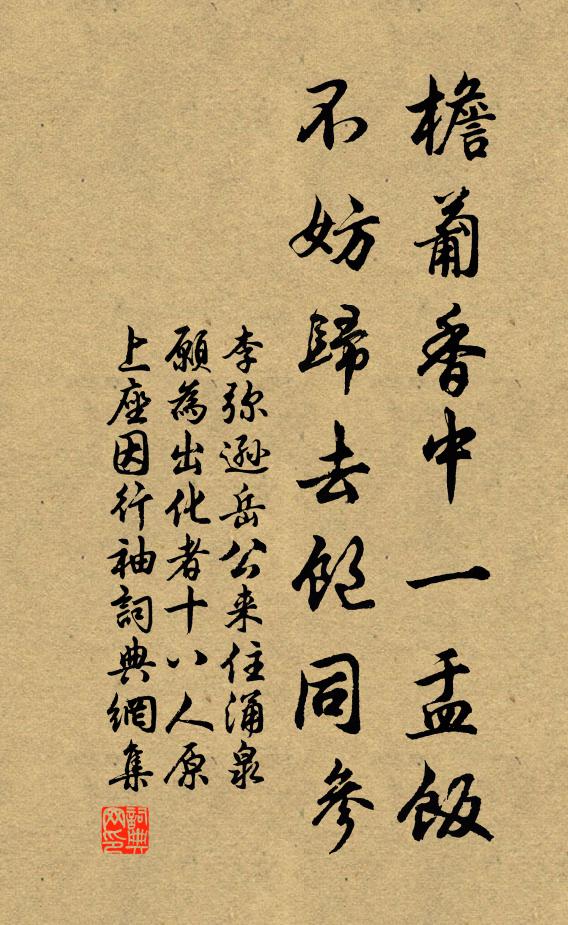 檐蔔香中一盂飯
不妨歸去飽同參
李弥遜岳公来住涌泉
願為出化者十八人原
上座因行袖詞典網集
詞典
网印